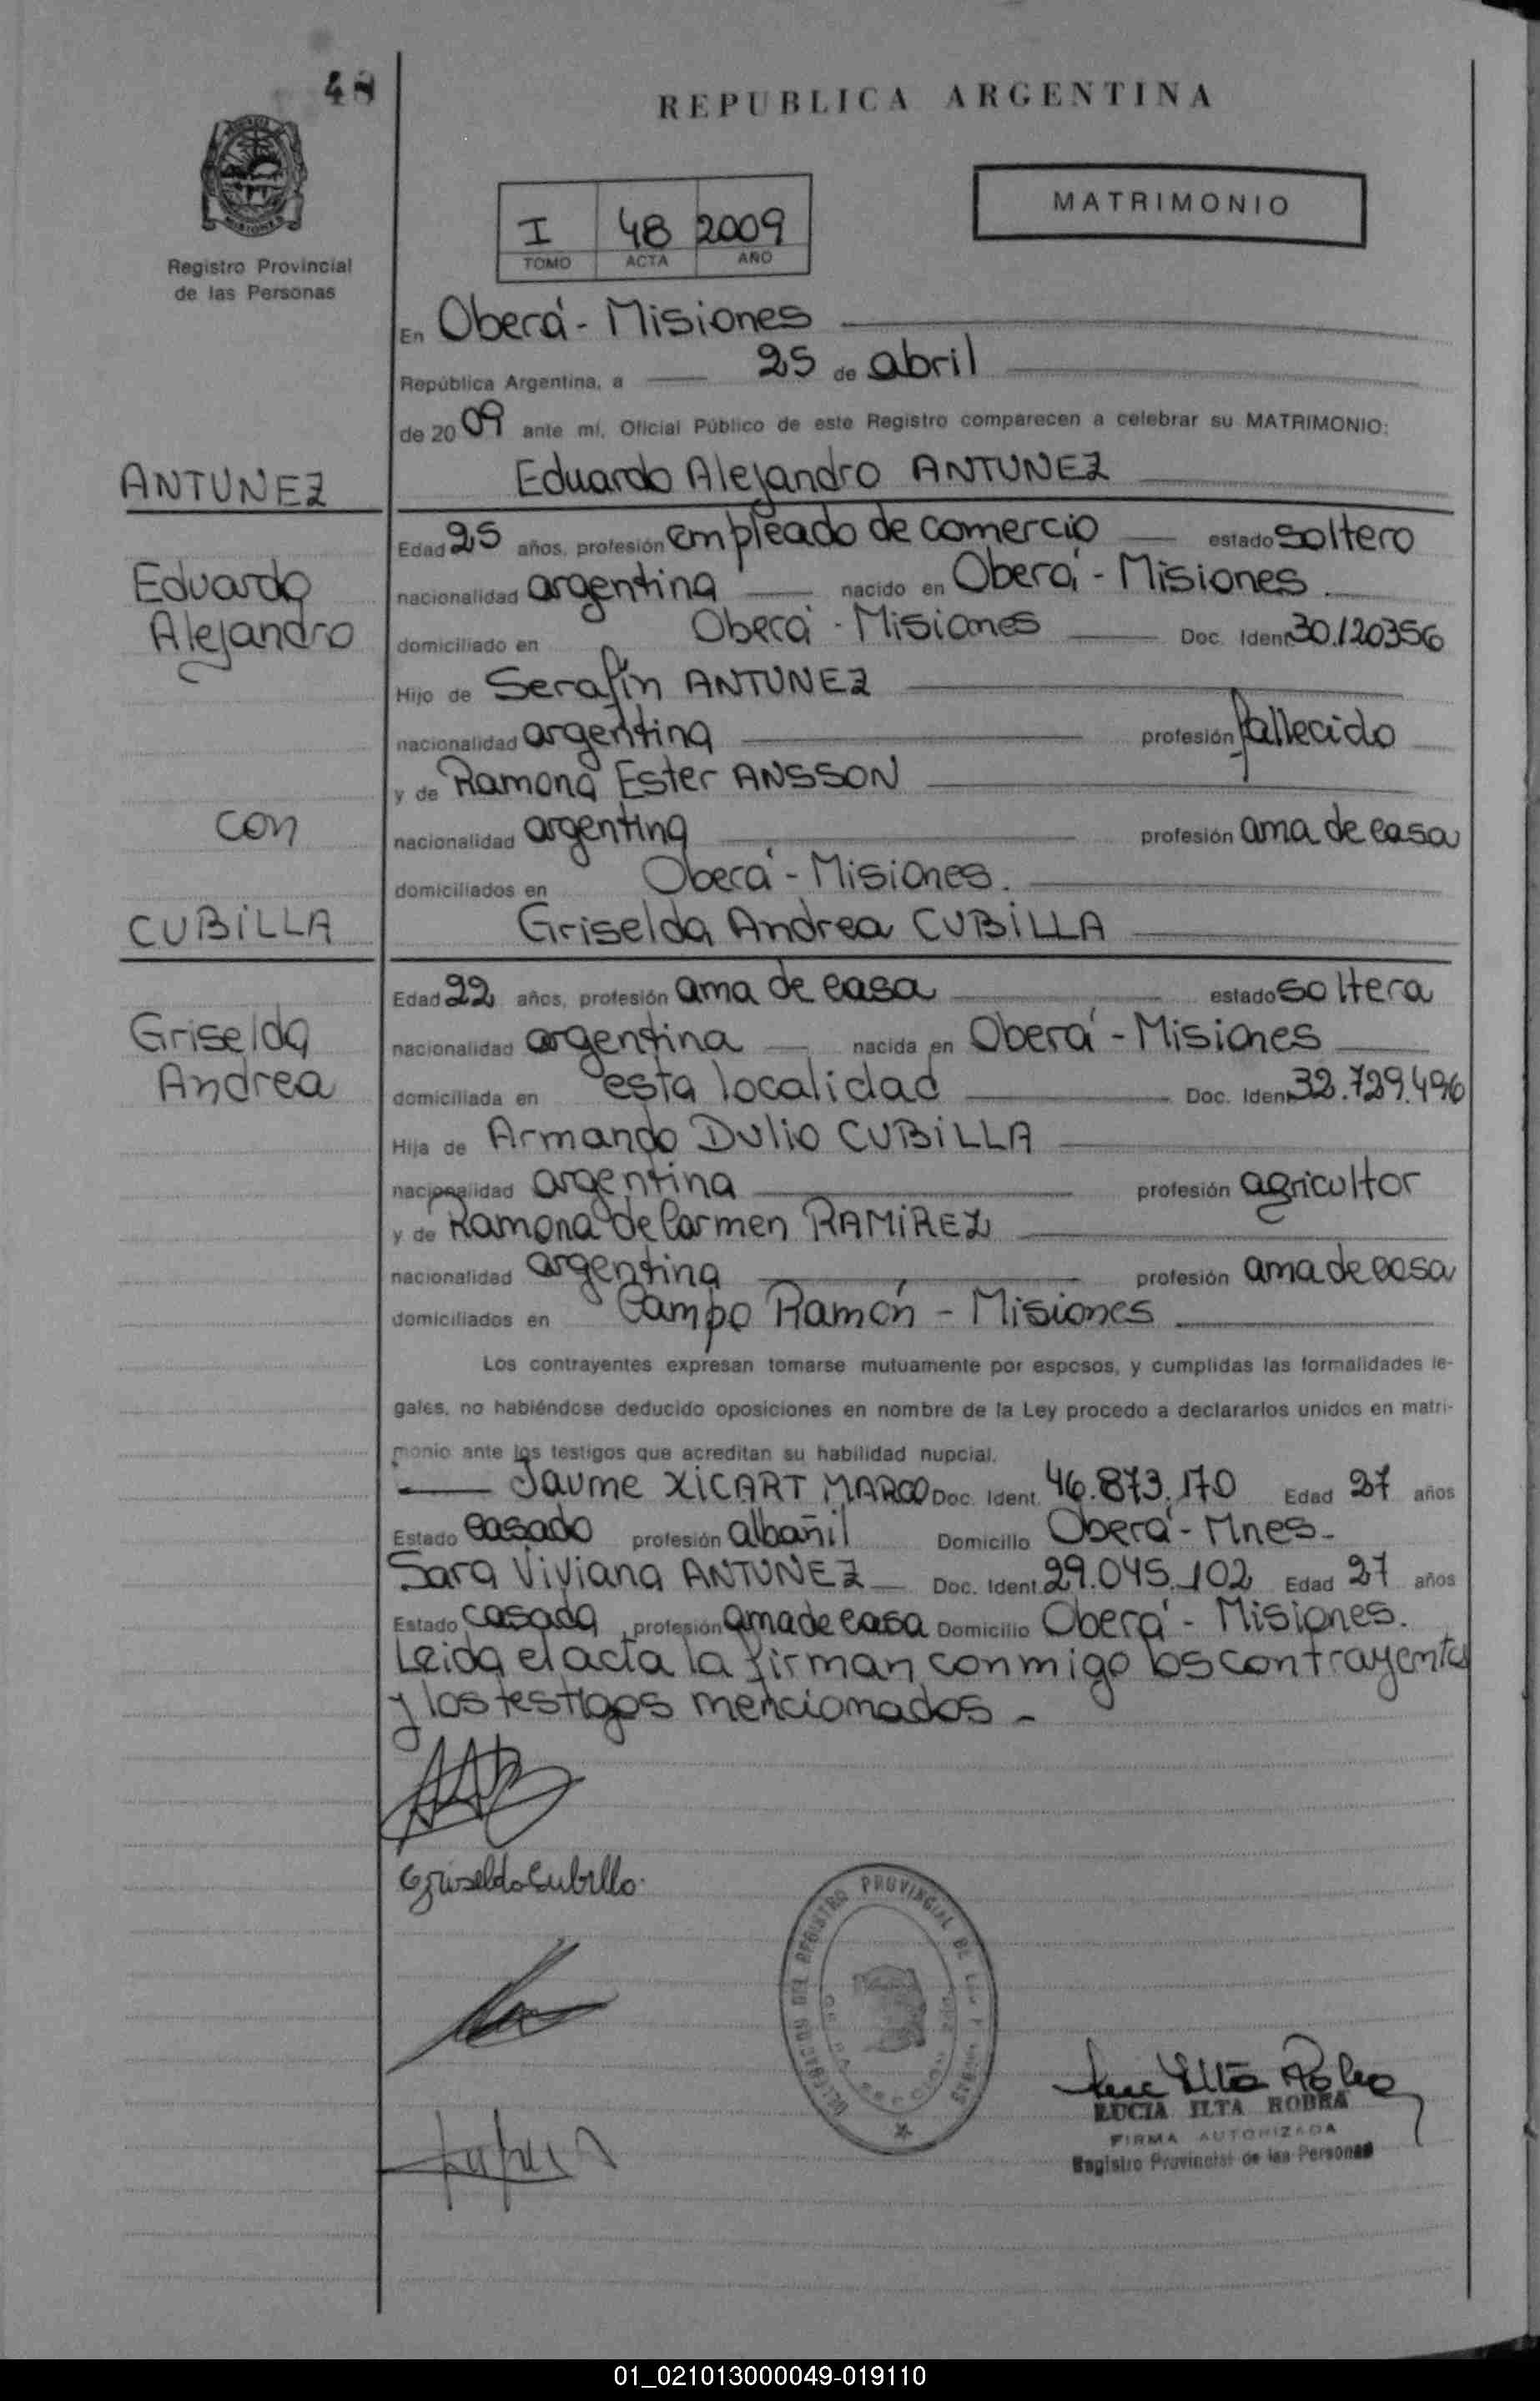 48
REPUBLICA ARGENTINA
MATRIMONIO
I 48 2009
TOMO ACTA AÑO
Registro Provincial
de las Personas
En Oberá - Misiones
República Argentina, a 25 de abril
de 2009 ante mí, Oficial Público de este Registro comparecen a celebrar su MATRIMONIO:
ANTUNEZ
Eduardo Alejandro ANTUNEZ
Edad 25 años, profesión empleado de comercio estado soltero
Eduardo
Alejandro
nacionalidad argentina nacido en Oberá - Misiones
domiciliado en Oberá - Misiones Doc. Ident. 30.120356
Hijo de Serafín ANTUNEZ
nacionalidad argentina profesión fallecido
y de Ramona Ester ANSSON
con
nacionalidad argentina profesión ama de casa
domiciliados en Oberá - Misiones.
CUBILLA
Griselda Andrea CUBILLA
Edad 22 años, profesión ama de casa estado soltera
Griselda
Andrea
nacionalidad argentina nacida en Oberá - Misiones
domiciliada en esta localidad Doc. Ident. 32.729.496
Hija de Armando Dulio CUBILLA
nacionalidad argentina profesión agricultor
y de Ramona de Carmen RAMIREZ
nacionalidad argentina profesión ama de casa
domiciliados en Campo Ramón - Misiones
Los contrayentes expresan tomarse mutuamente por esposos, y cumplidas las formalidades le-
gales, no habiéndose deducido oposiciones en nombre de la Ley procedo a declararlos unidos en matri-
monio ante los testigos que acreditan su habilidad nupcial.
Jaume XICART MARCO Doc. Ident. 46.873.170 Edad 27 años
Estado casado profesión albañil Domicilio Oberá - Mnes-
Sara Viviana ANTUNEZ Doc. Ident. 29.045.102 Edad 27 años
Estado casada profesión ama de casa Domicilio Oberá - Misiones.
Leida el acta la firman conmigo los contrayentes
y los testigos mencionados -
Griselda Cubilla.
DELEGACION DEL REGISTRO PROVINCIAL DE LAS PERSONAS
LUCIA ILTA RODRA
FIRMA AUTORIZADA
Registro Provincial de las Personas
01_021013000049-019110